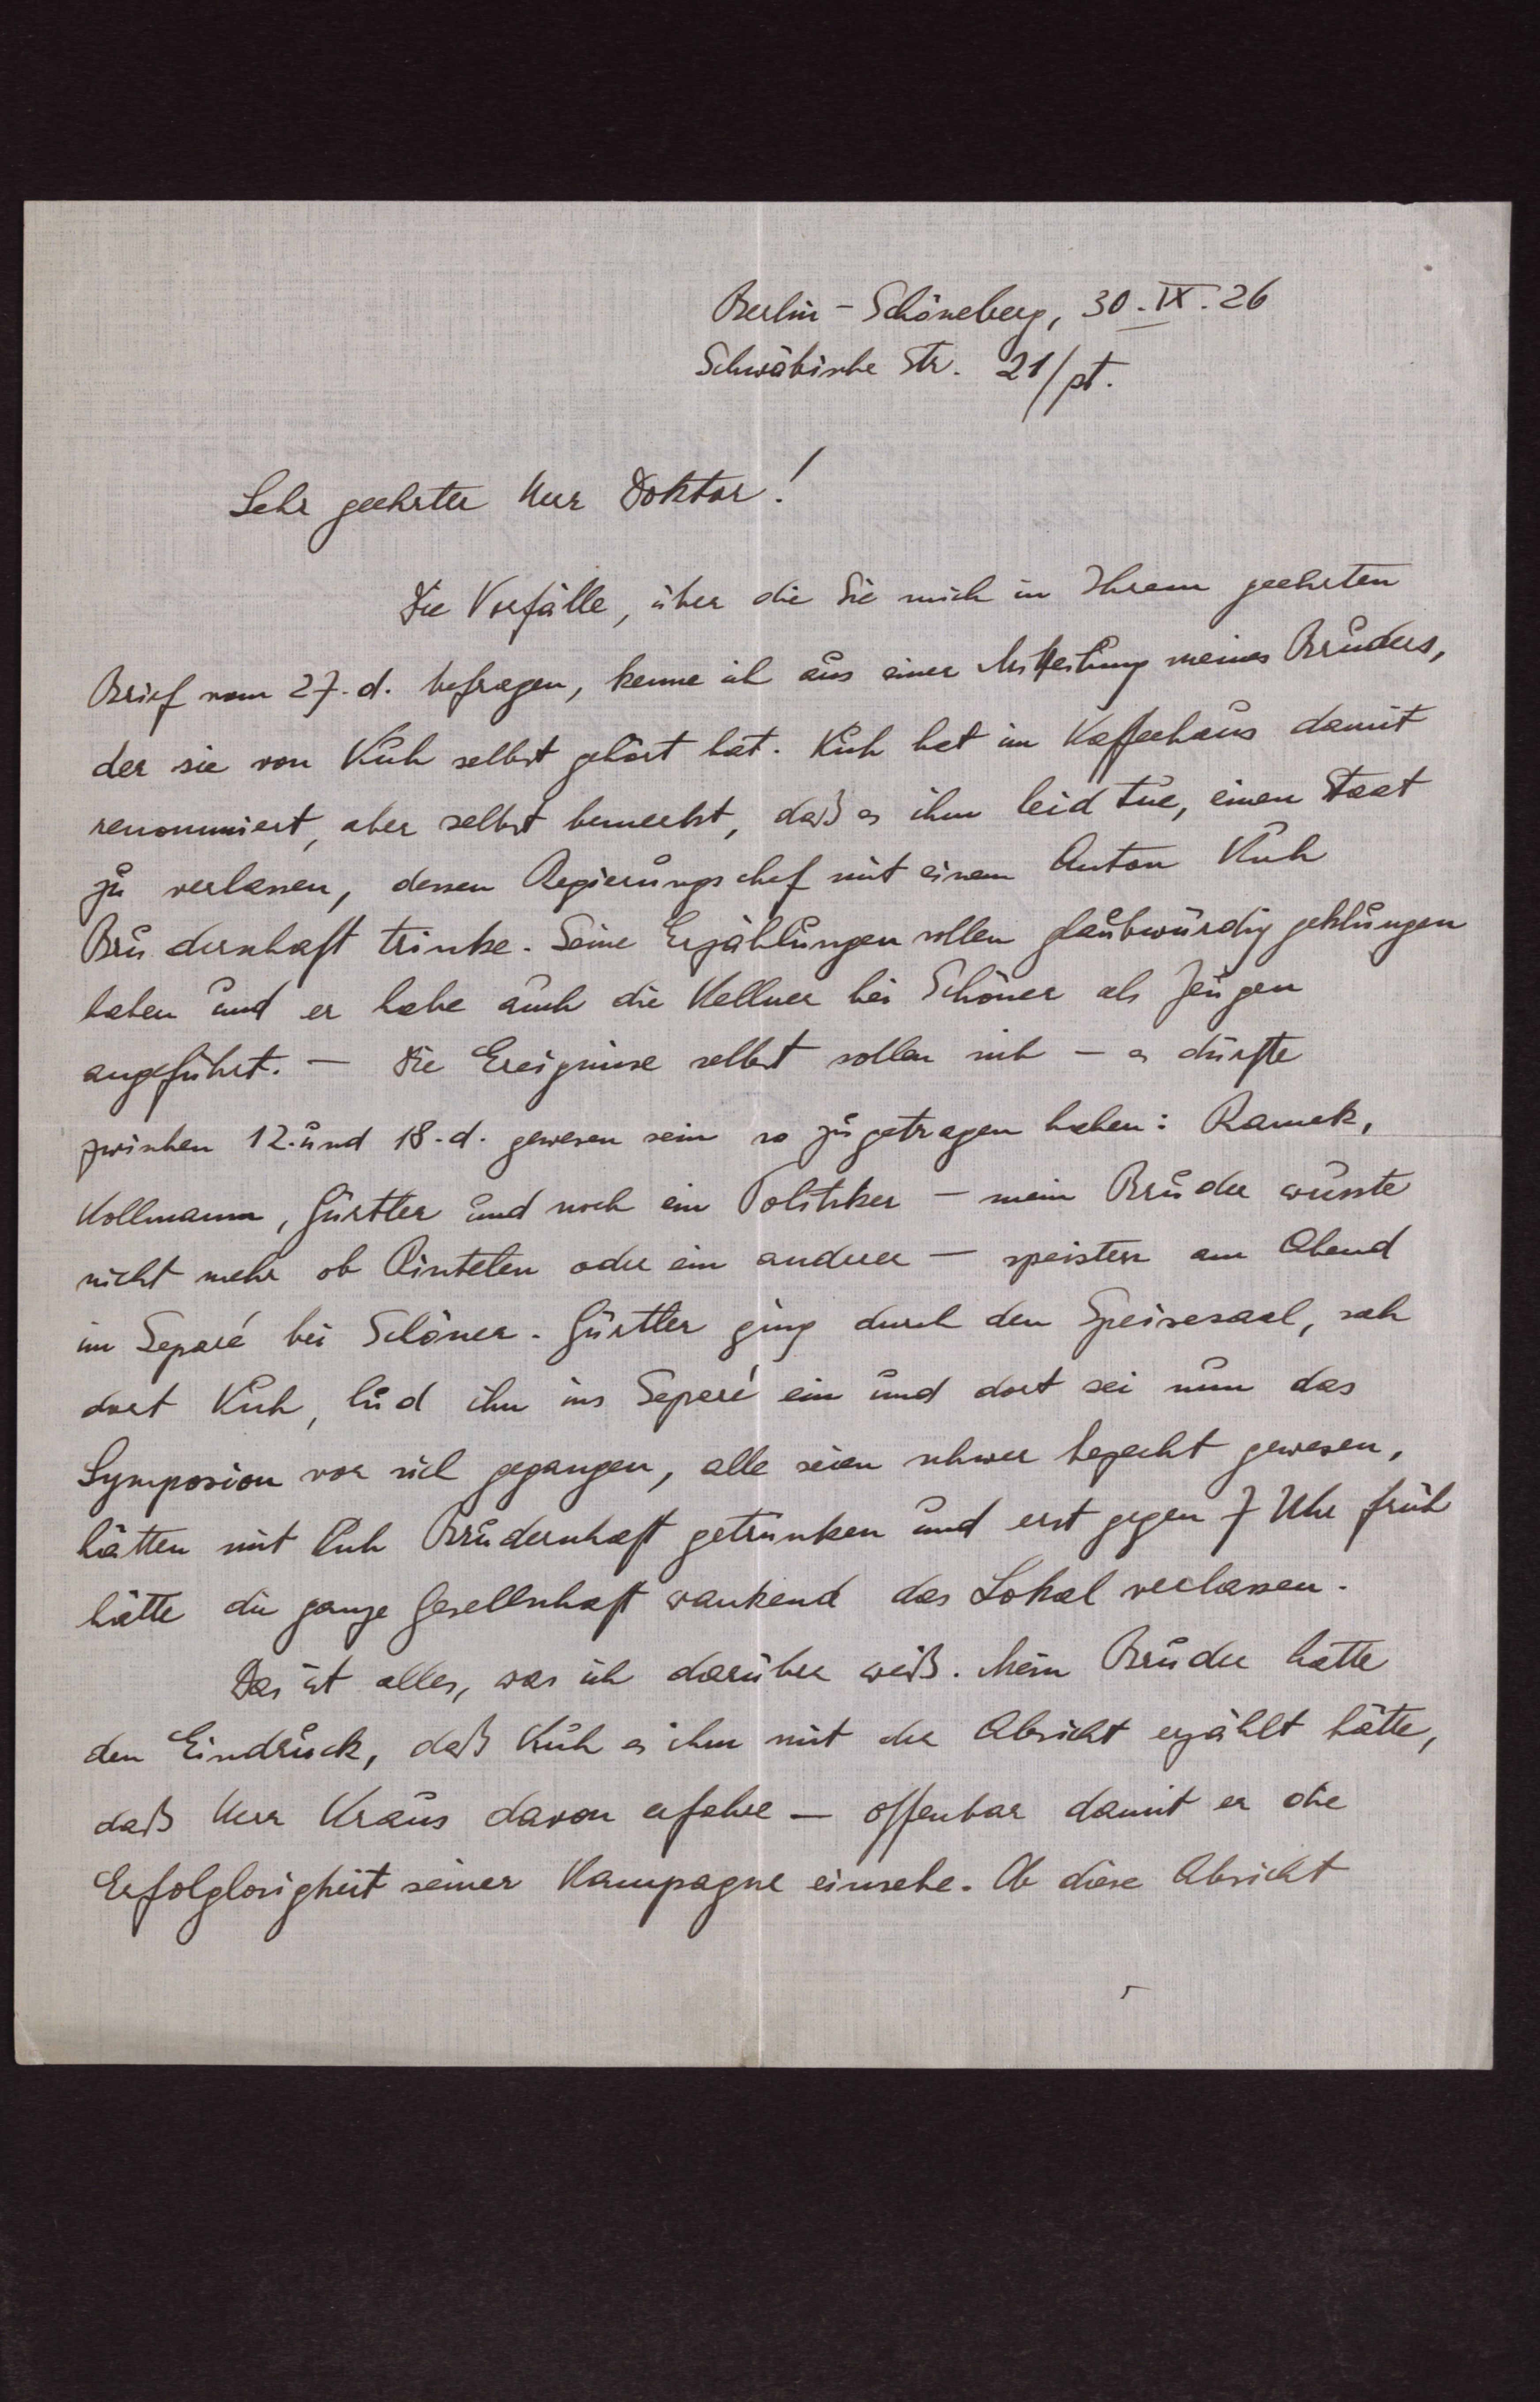 Berlin-Schöneberg, 30.IX.26
Schwäbische Str. 21/pt.
Sehr geehrter Herr Doktor!
Die Vorfälle, über die Sie mich in Ihrem geehrten
Brief vom 27. d. befragen, kenne ich aus einer Mitteilung meines Bruders,
der sie von Kuh selbst gehört hat. Kuh hat im Kaffeehaus damit
renommiert, aber selbst bemerkt, daß es ihm leid tue, einen Staat
zu verlassen, dessen Regierungschef mit einem Anton Kuh
Bruderschaft trinke. Seine Erzählungen sollen glaubwürdig geklungen
haben und er habe auch die Kellner bei Schöner als Zeugen
angeführt. — Die Ereignisse selbst sollen sich — es dürfte
zwischen 12. und 18. d. gewesen sein so zugetragen haben: Ramek,
Kollmann, Gürtler und noch ein Politiker — mein Bruder wusste
nicht mehr ob Rintelen oder ein anderer — speisten am Abend
im Separé bei Schöner. Gürtler ging durch den Speisesaal, sah
dort Kuh, lud ihn ins Separé ein und dort sei nun das
Symposion vor sich gegangen, alle seien schwer bezecht gewesen,
hätten mit Kuh Bruderschaft getrunken und erst gegen 7 Uhr früh
hätte die ganze Gesellschaft wankend das Lokal verlassen.
Das ist alles, was ich darüber weiß. Mein Bruder hatte
den Eindruck, daß Kuh es ihm mit der Absicht erzählt hätte,
daß Herr Kraus davon erfahre — offenbar damit er die
Erfolglosigkeit seiner Kampagne einsehe. Ob diese Absicht